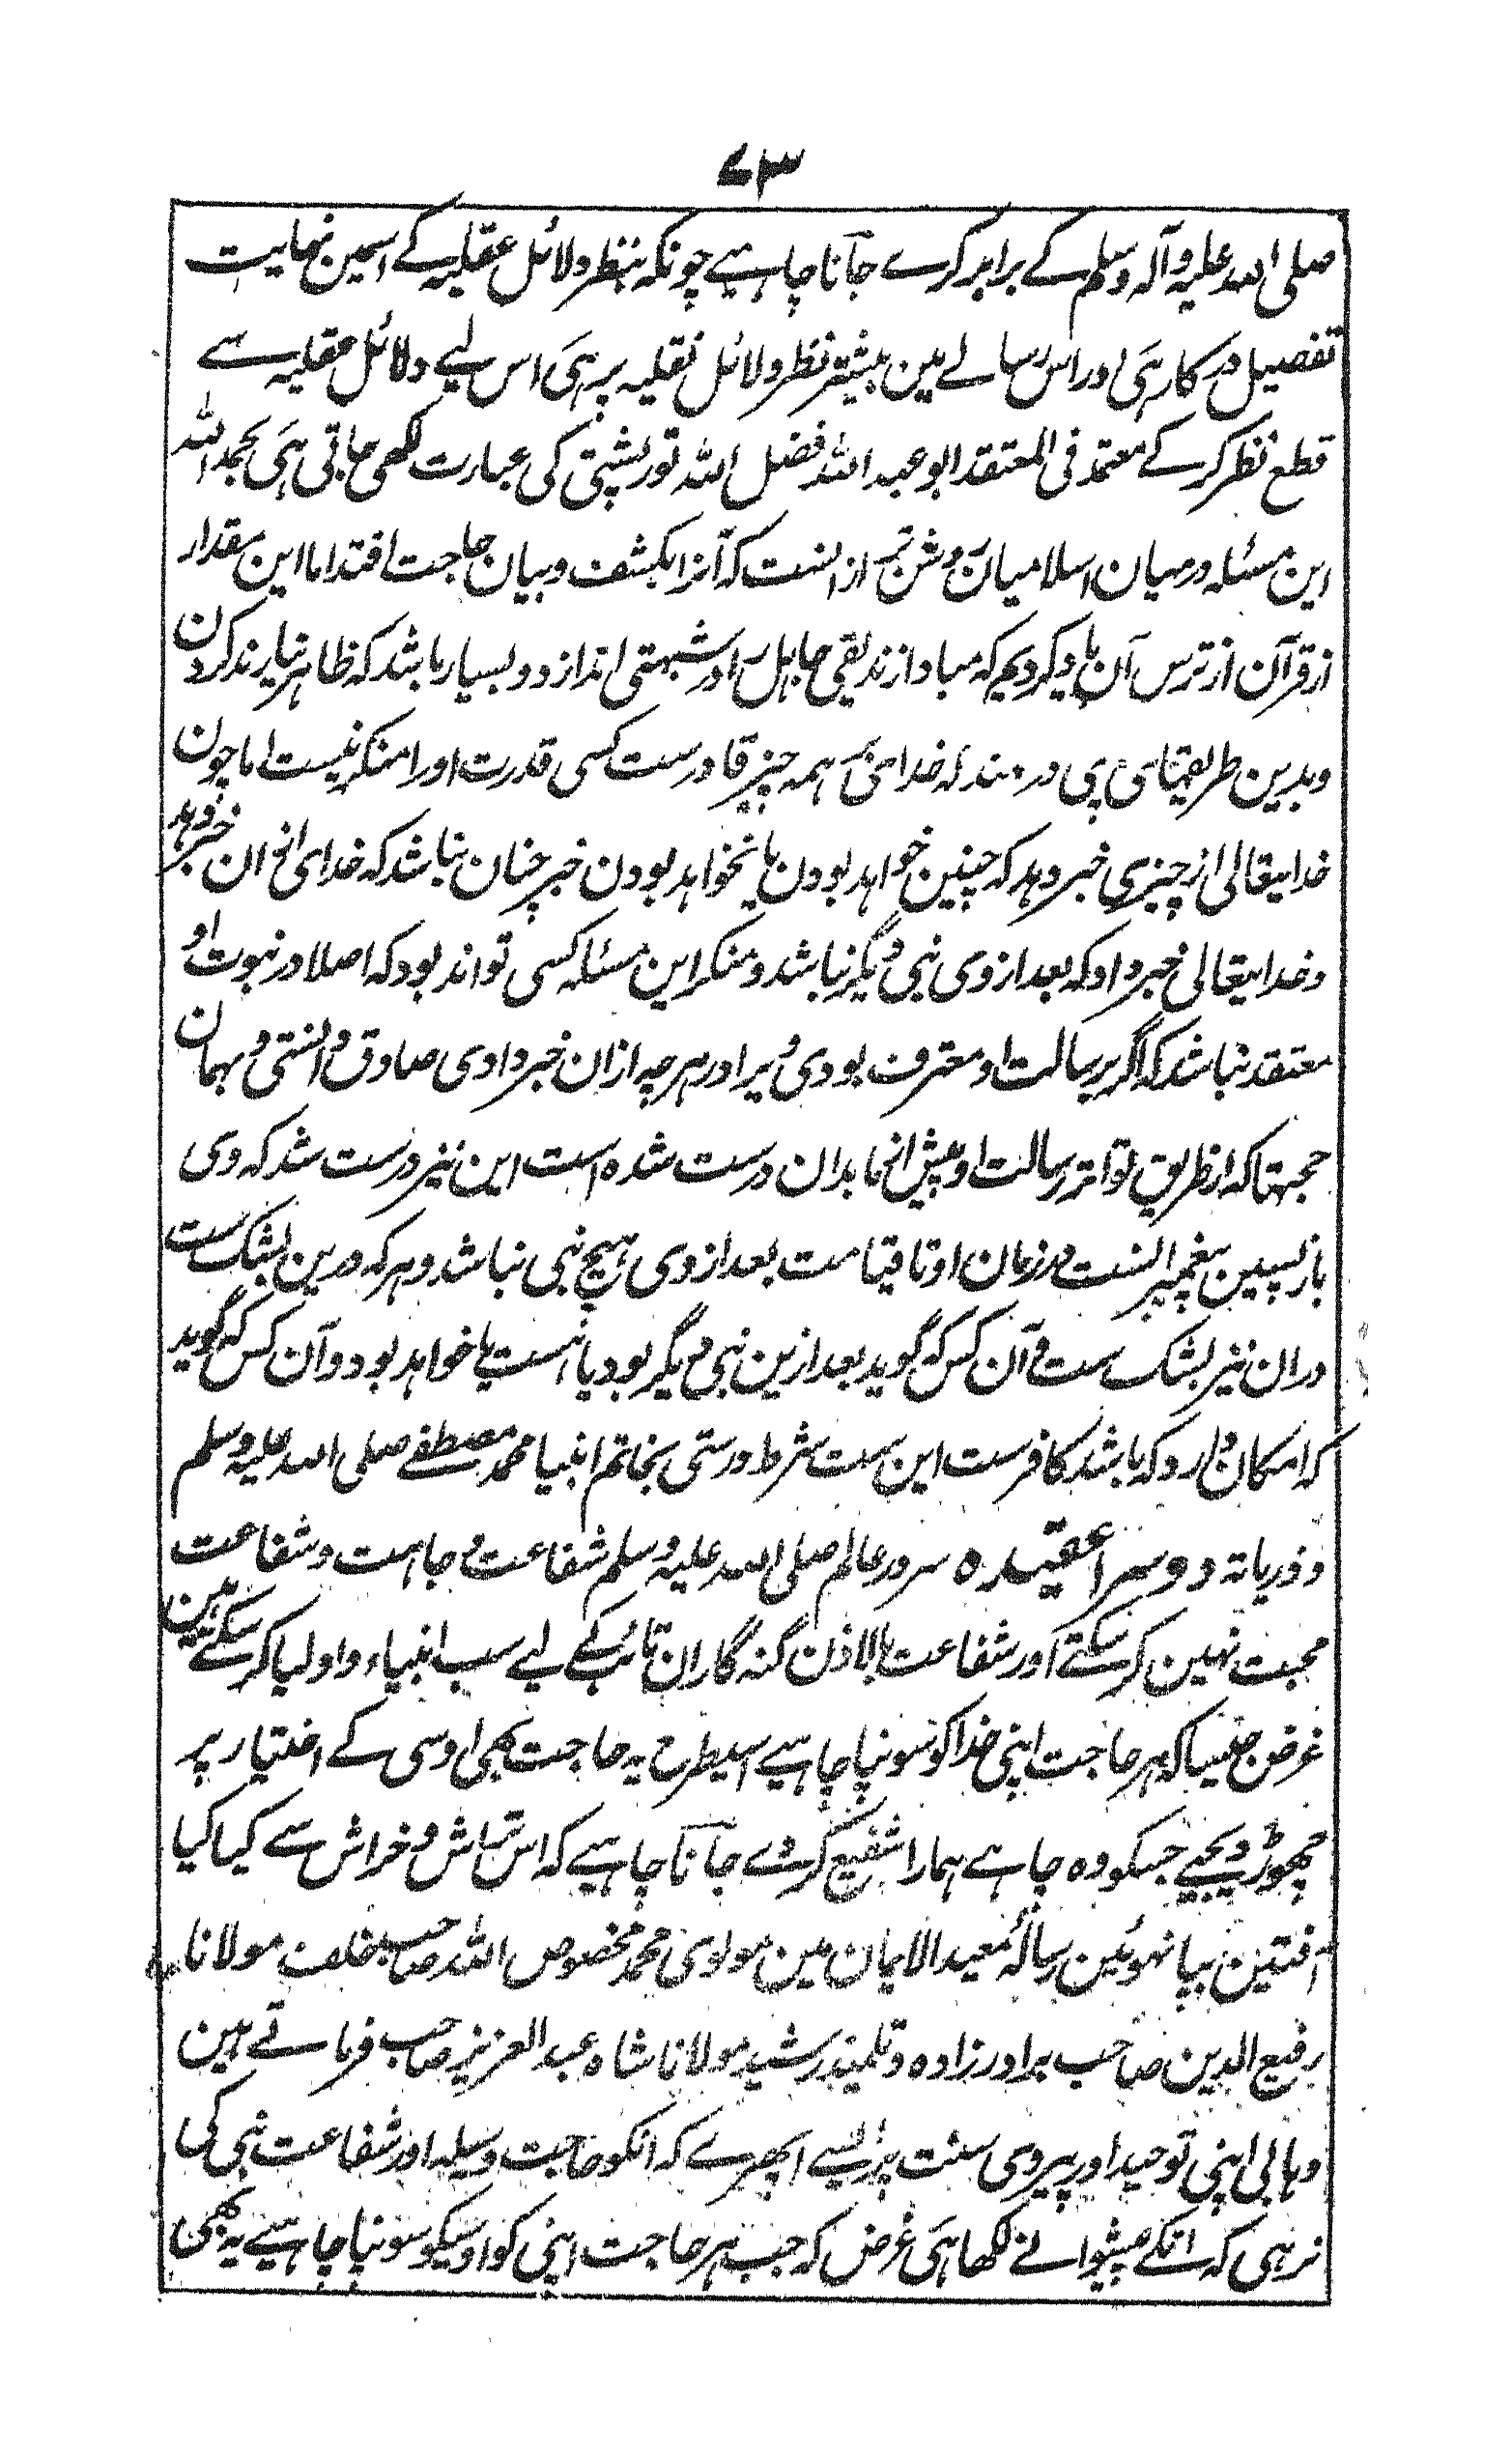 ۷۳
صلی اللہ علیہ وآلہ وسلم کے برابر کرے جاننا چاہیے چونکہ بنظر دلائل عقلیہ کے اسمین نہایت
تفصیل درکار ہی اور اس رسالے مین بیشتر نظر دلائل نقلیہ پر ہی اس لیے دلائل عقلیہ سے
قطع نظر کر کے معتمد فی المعتقد ابو عبد اللہ فضل اللہ تورپشتی کی عبارت لکھی جاتی ہی بحمد اللہ
این مسئلہ درمیان اسلامیان روشن تر از انست کہ آنرا بکشف و بیان حاجت افتد اما این مقدار
از قرآن از ترس آن یاد کردیم کہ مبادا زندیقی جاہل را در شبہتی اندازد و بسیار باشد کہ ظاہر نیارند کردن
و بدین طریقہای پی در نہند کہ خدای بر ہمہ چیز قادرست کسی قدرت او را منکر نیست اما چون
خدایتعالی از چیزی خبر دہد کہ چنین خواہد بودن یا نخواہد بودن خبر چنان نباشد کہ خدای از ان خبر دہد
و خدایتعالی خبر داد کہ بعد از وی نبی دیگر نباشد و منکر این مسئلہ کسی تواند بود کہ اصلا در نبوت او
معتقد نباشد کہ اگر برسالت او معترف بودی ویرا در ہرچہ از ان خبر دادی صادق دانستی و بہمان
حجتہا کہ از طریق تواتر رسالت او پیش از ما بدان درست شدہ است این نیز درست شد کہ وی
باز پسین پیغمبرانست در زمان او تا قیامت بعد از وی ہیچ نبی نباشد و ہر کہ درین بشک ست
دران نیز بشک ست و آن کس کہ گوید بعد ازین نبی دیگر بود یا ہست یا خواہد بود و آن کس کہ گوید
کہ امکان دارد کہ باشد کافرست این ست شرط درستی بخاتم انبیا محمد مصطفے صلی اللہ علیہ وسلم
و ذریاتہ دوسرا عقیدہ سرور عالم صلی اللہ علیہ وسلم شفاعت وجاہت و شفاعت
محبت نہین کر سکتے اور شفاعت بالاذن گنہ گاران تائب کے لیے سب انبیاء و اولیا کر سکتے ہین
غرض جیسا کہ ہر حاجت اپنی خدا کو سونپا چاہیے اسیطرح یہ حاجت بھی اوسی کے اختیار پر
چھوڑ دیجیے جسکو وہ چاہے ہمارا شفیع کر دے جاننا چاہیے کہ اس تراش و خراش سے کیا کیا
آفتین بپا نہوئین رسالہ معید الایمان مین مولوی محمد مخصوص اللہ صاحب خلف مولانا
رفیع الدین صاحب برادر زادہ و تلمیذ رشید مولانا شاہ عبد العزیز صاحب فرماتے ہین
وہابی اپنی توحید اور پیروی سنت پر ایسے اچھرے کہ انکو حاجت وسیلہ اور شفاعت نبی کی
نرہی کہ انکے پیشوا نے لکھا ہی غرض کہ جب ہر حاجت اپنی کو اوسیکو سونپا چاہیے یہ بھی